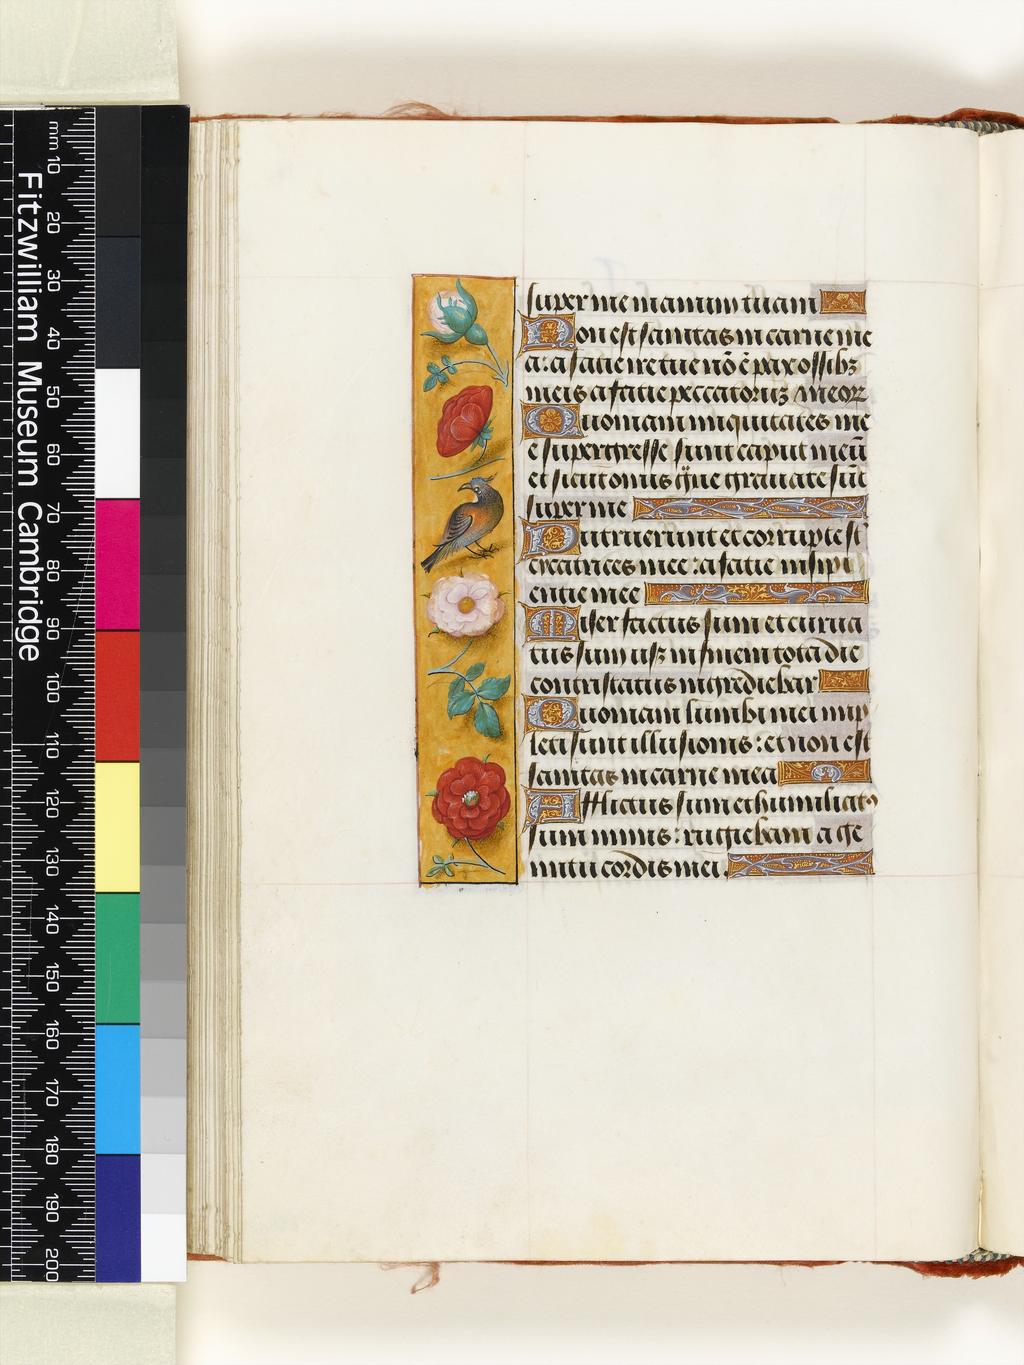 mm 10 20 30 40 50 60 70 80 90 100 110 120 130 140 150 160 170 180 190 200
Fitzwilliam Museum Cambridge
super me manum tuam
Non est sanitas in carne me
a: a facie ire tue nō ē pax ossibꝫ
meis a facie peccatorūꝫ meoꝝ
Quoniam iniquitates me
e supergresse sunt caput meū
et sicut onus graue grauate sūt
super me
Putruerunt et corrupte sūt
cicatrices mee: a facie insipi
entie mee
Miser factus sum et curua
tus sum usqꝫ in finem tota die
contristatus ingrediebar
Quoniam lumbi mei imp
leti sunt illusionis: et non est
sanitas in carne mea
Afflictus sum et humiliatꝰ
sum nimis: rugiebam a ge
mitu cordis mei.